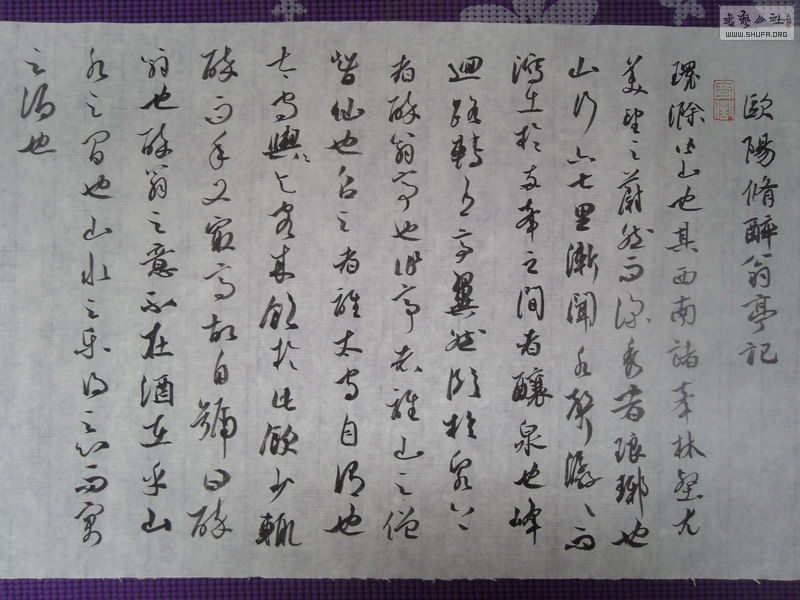 歐陽脩醉翁亭記
環滁皆山也其西南諸峯林壑尤
美望之蔚然而深秀者琅琊也
山行六七里漸聞水聲潺〻而
瀉出於兩峯之間者釀泉也峰
迴路轉有亭翼然臨於泉上
者醉翁亭也作亭者誰山之僧
智仙也名之者誰太守自謂也
太守與客來飲於此飲少輒
醉而年又最高故自號曰醉
翁也醉翁之意不在酒在乎山
水之間也山水之樂得之心而寓
之酒也
書藝公社
WWW.SHUFA.ORG